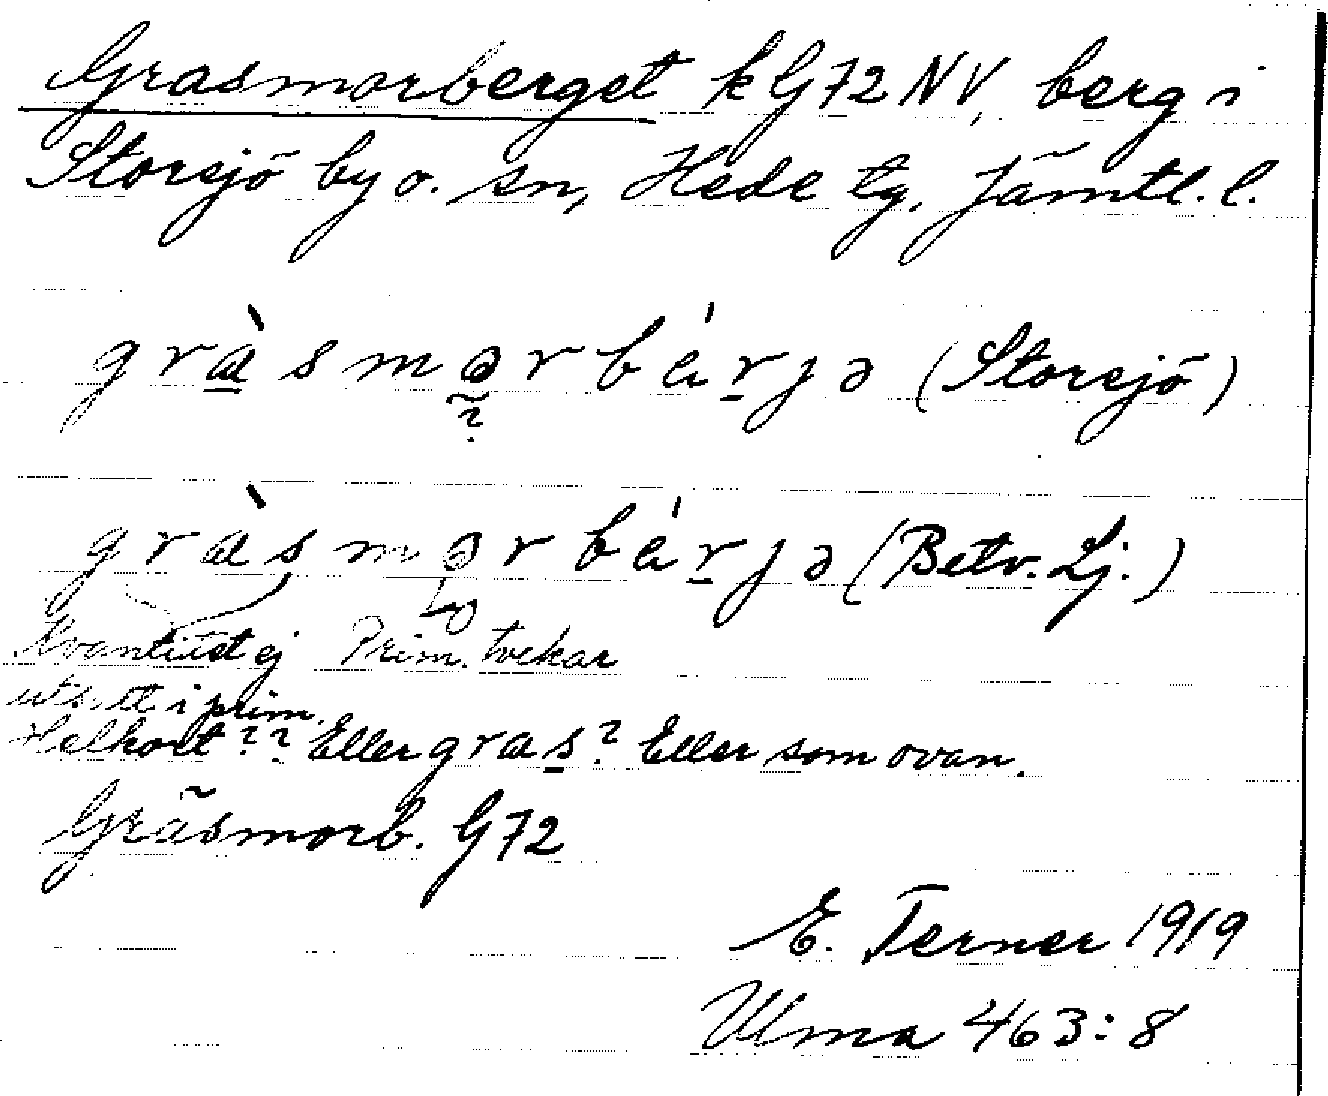 Grasmorberget k G72 NV, berg i
Storsjö by o. sn, Hede tg, Jämtl. l.
gràsmərbärjə (Storsjö)
?
gràsmərbärjə (Betv. Lj.)
Kvantitet ej Prim. tvekar
utsatt i prim.
Helkort?? Eller gras? Eller som ovan.
Gräsmorb. G72
E. Terner 1919
Ulma 463:8